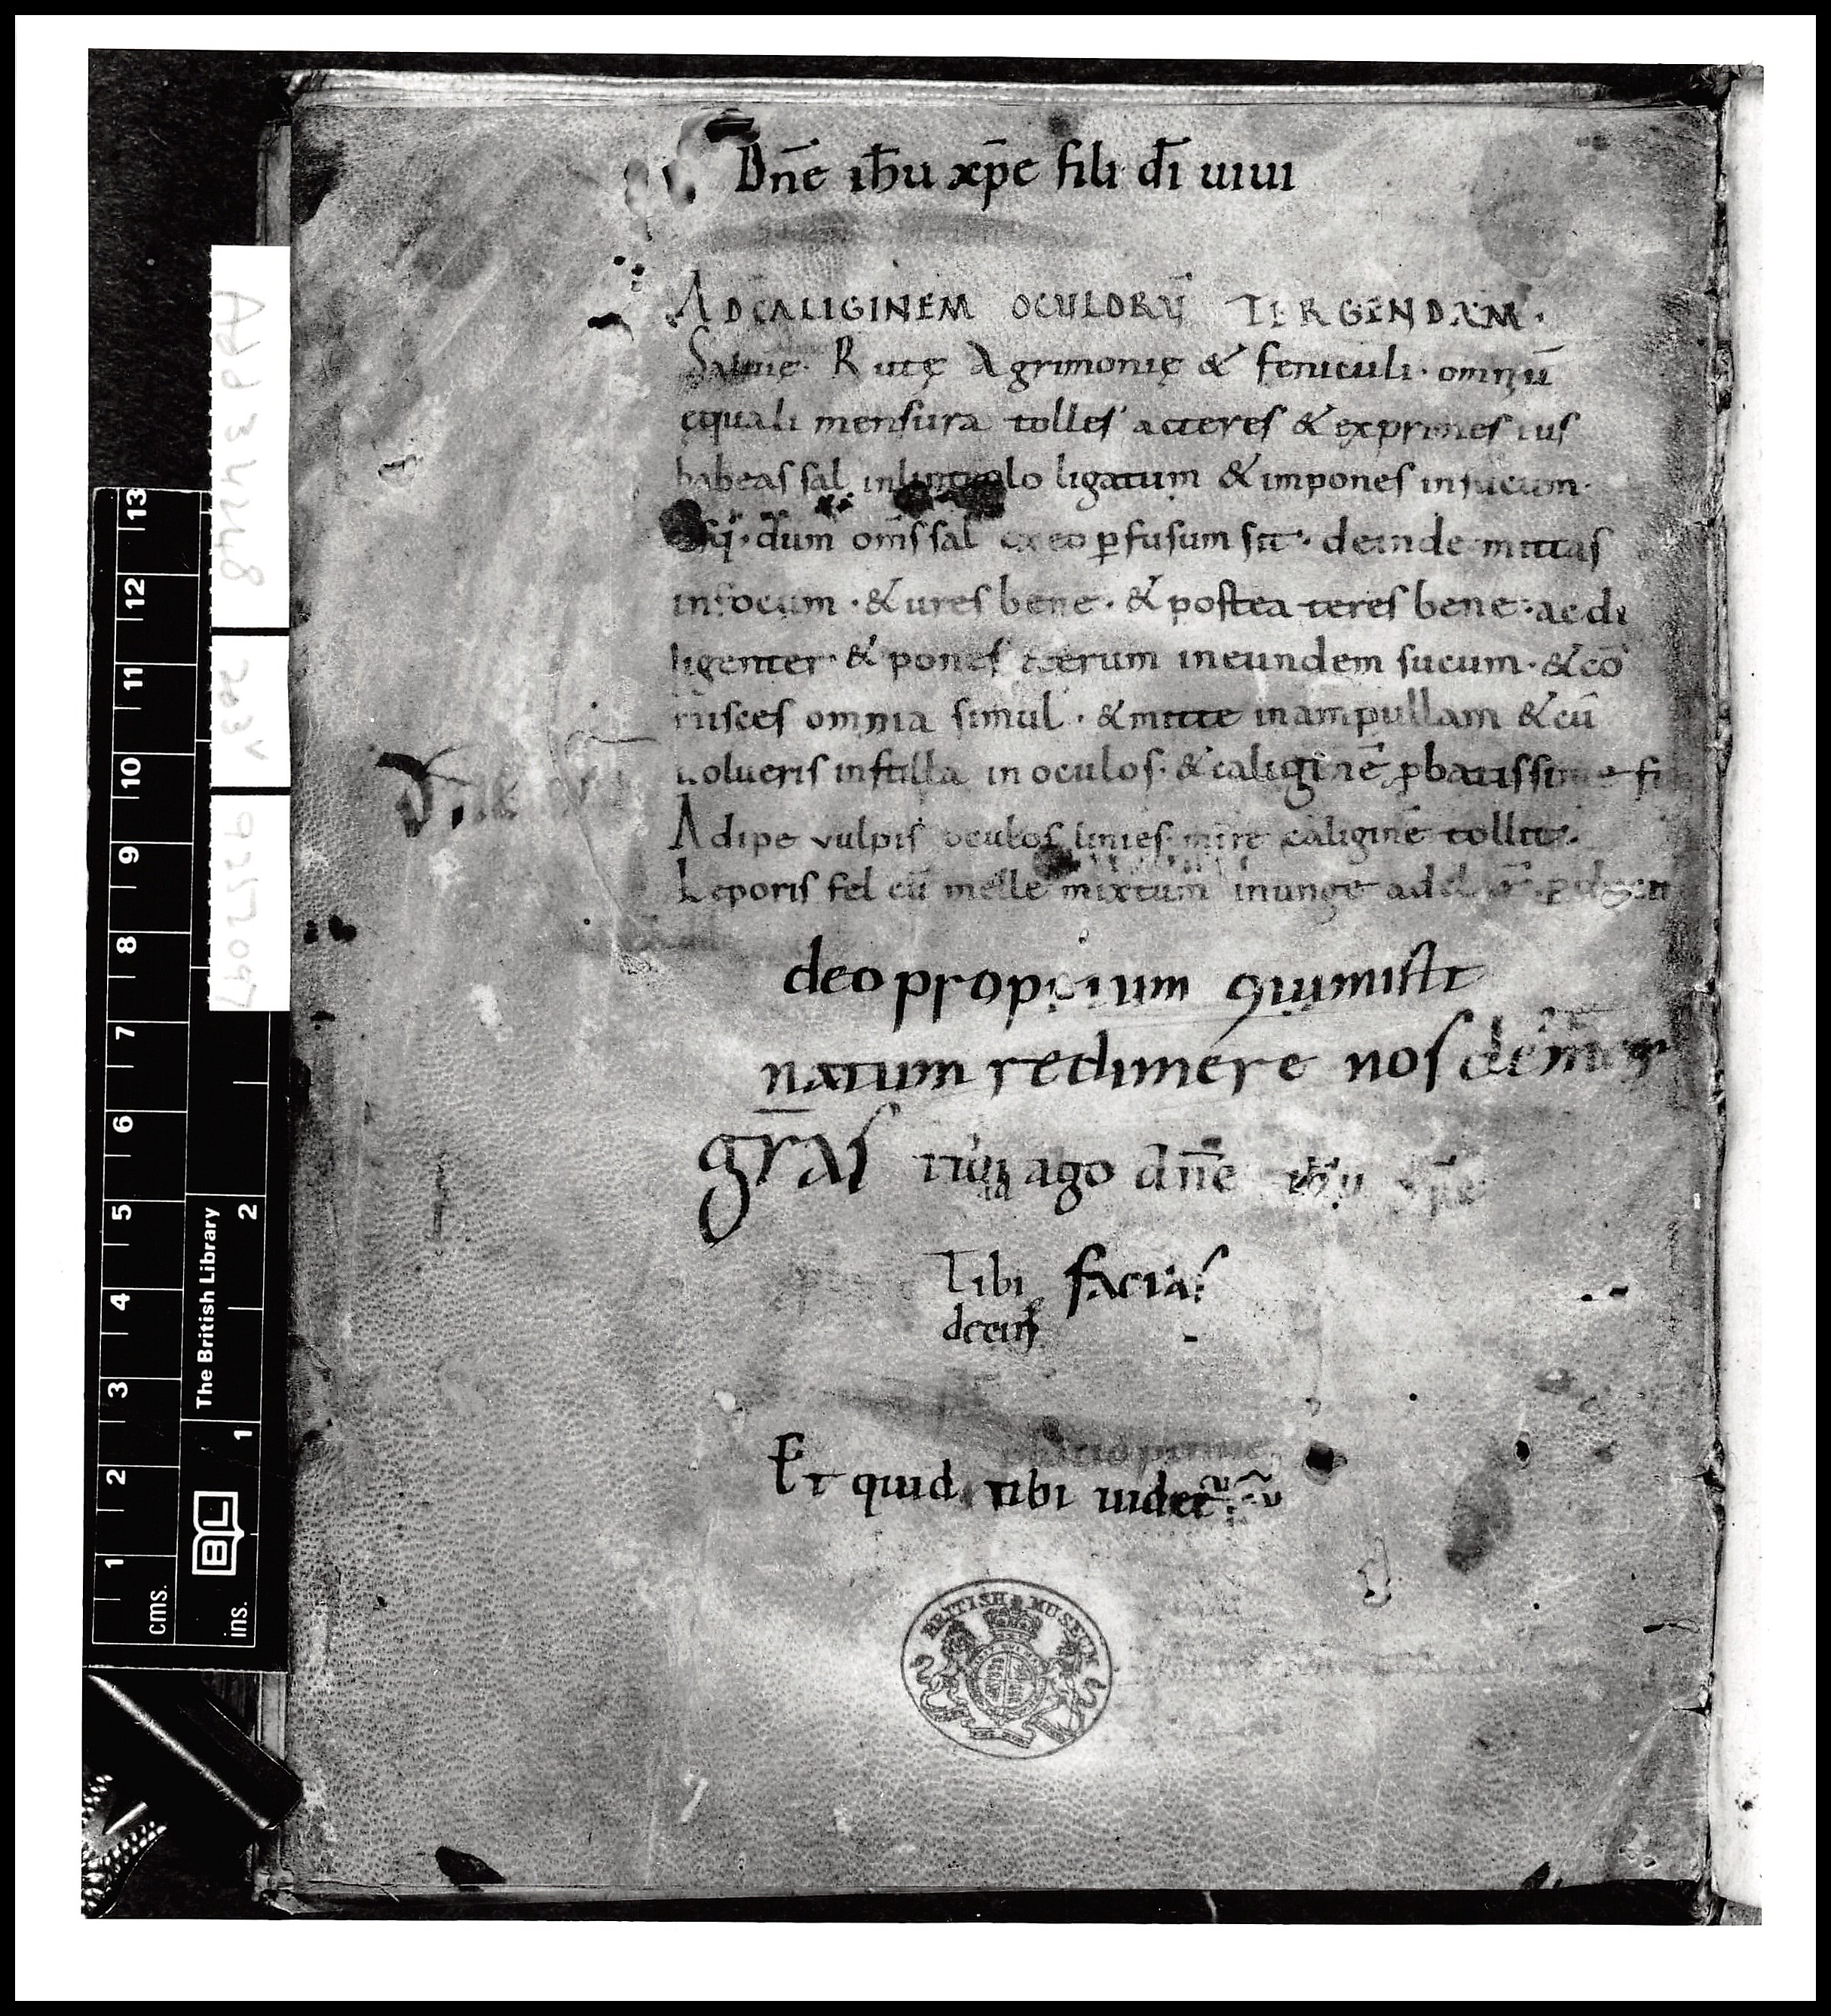 Dn̄e ih̄u xp̄e fili dī uiui
ADCALIGINEM OCULORŪ TERGENDAM.
Saluię. Rutę Agrimonię & feniculi. omniū
ęquali mensura tolles acteres & exprimes ius
habeas sal inlinteolo ligatum & impones insucum.
dum om̄s sal exeo ꝑfusum sit. deinde mittas
infocum. & ures bene. & postea teres bene. ac di
ligenter. & pones iterum ineundem sucum. & cō
misces omnia simul. & mitte inampullam & cū
uolueris instilla in oculos. & caliginē ꝓbatissime
Adipe vulpis oculos linies. mire caliginē tollit.
Leporis fel cū melle mixtum inunge ad
deo propicium qui misit
natum redimere nos
gr̄as tibi ago dn̄e ih̄u xp̄e
Tibi facias
Et quid tibi uidet
BRITISH MUSEUM
Add 34248
203v
The British Library
BL
cms.
1 2 3 4 5 6 7 8 9 10 11 12 13
ins.
1 2